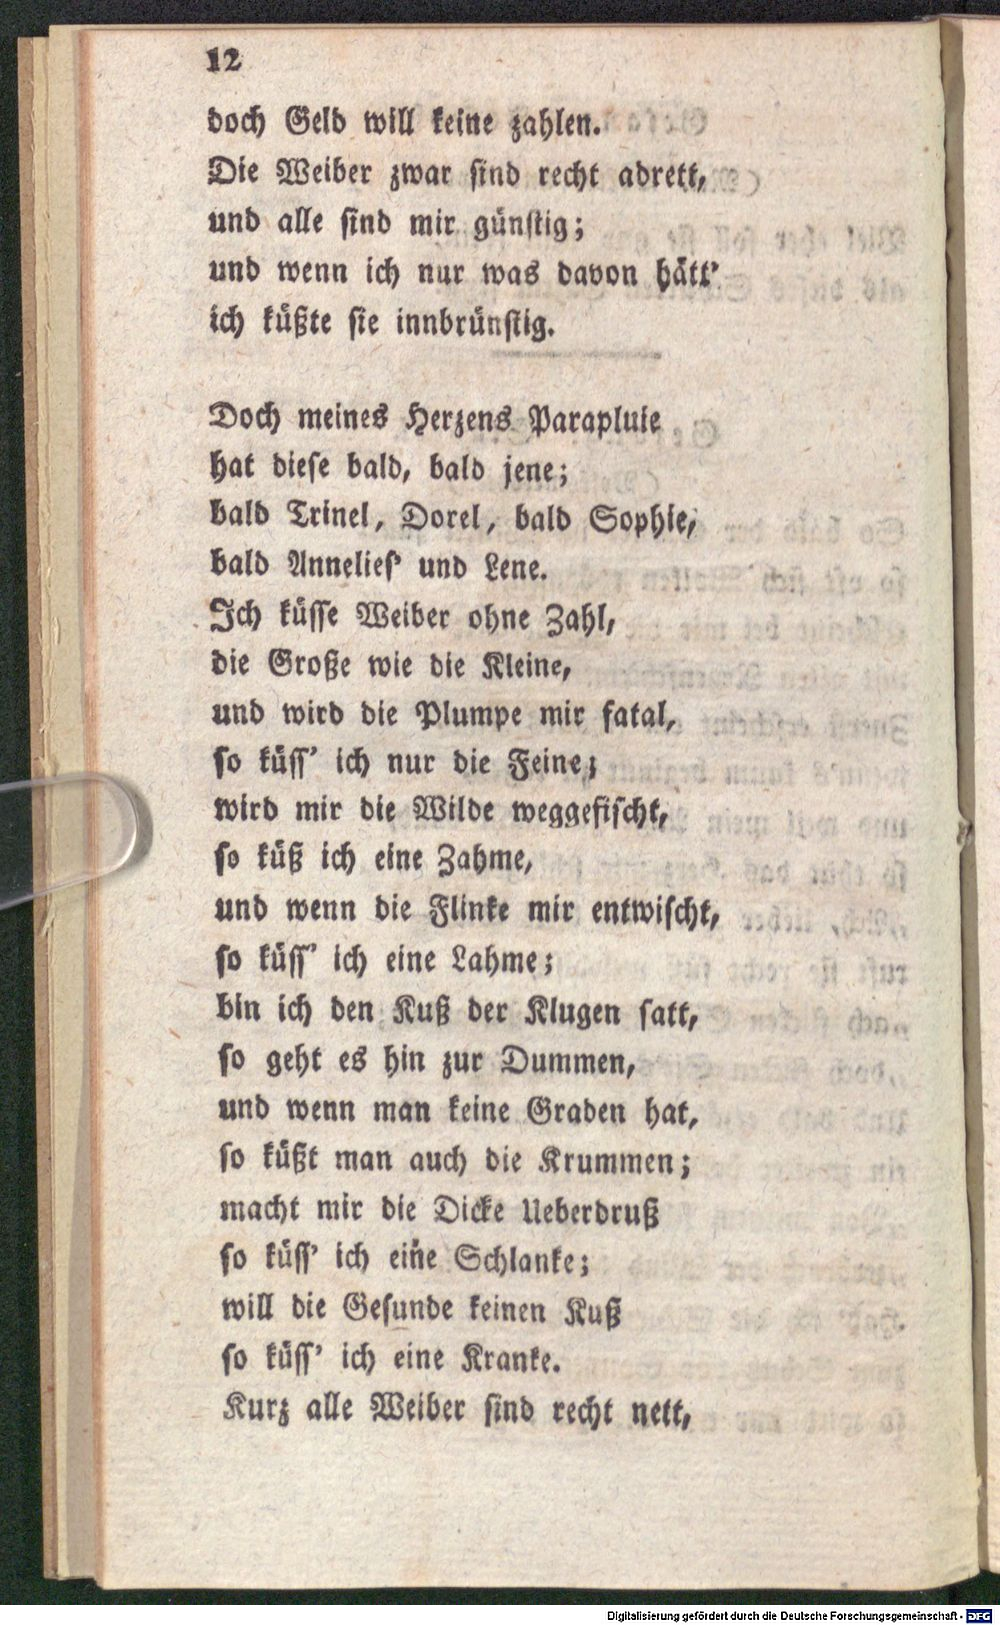 12
doch Geld will keine zahlen.
Die Weiber zwar sind recht adrett,
und alle sind mir günstig;
und wenn ich nur was davon hätt'
ich küßte sie innbrünstig.
Doch meines Herzens Parapluie
hat diese bald, bald jene;
bald Trinel, Dorel, bald Sophie,
bald Annelies' und Lene.
Ich küsse Weiber ohne Zahl,
die Große wie die Kleine,
und wird die Plumpe mir fatal,
so küss' ich nur die Feine;
wird mir die Wilde weggefischt,
so küß ich eine Zahme,
und wenn die Flinke mir entwischt,
so küss' ich eine Lahme;
bin ich den Kuß der Klugen satt,
so geht es hin zur Dummen,
und wenn man keine Graden hat,
so küßt man auch die Krummen;
macht mir die Dicke Ueberdruß
so küss' ich eine Schlanke;
will die Gesunde keinen Kuß
so küss' ich eine Kranke.
Kurz alle Weiber sind recht nett,
Digitalisierung gefördert durch die Deutsche Forschungsgemeinschaft - DFG